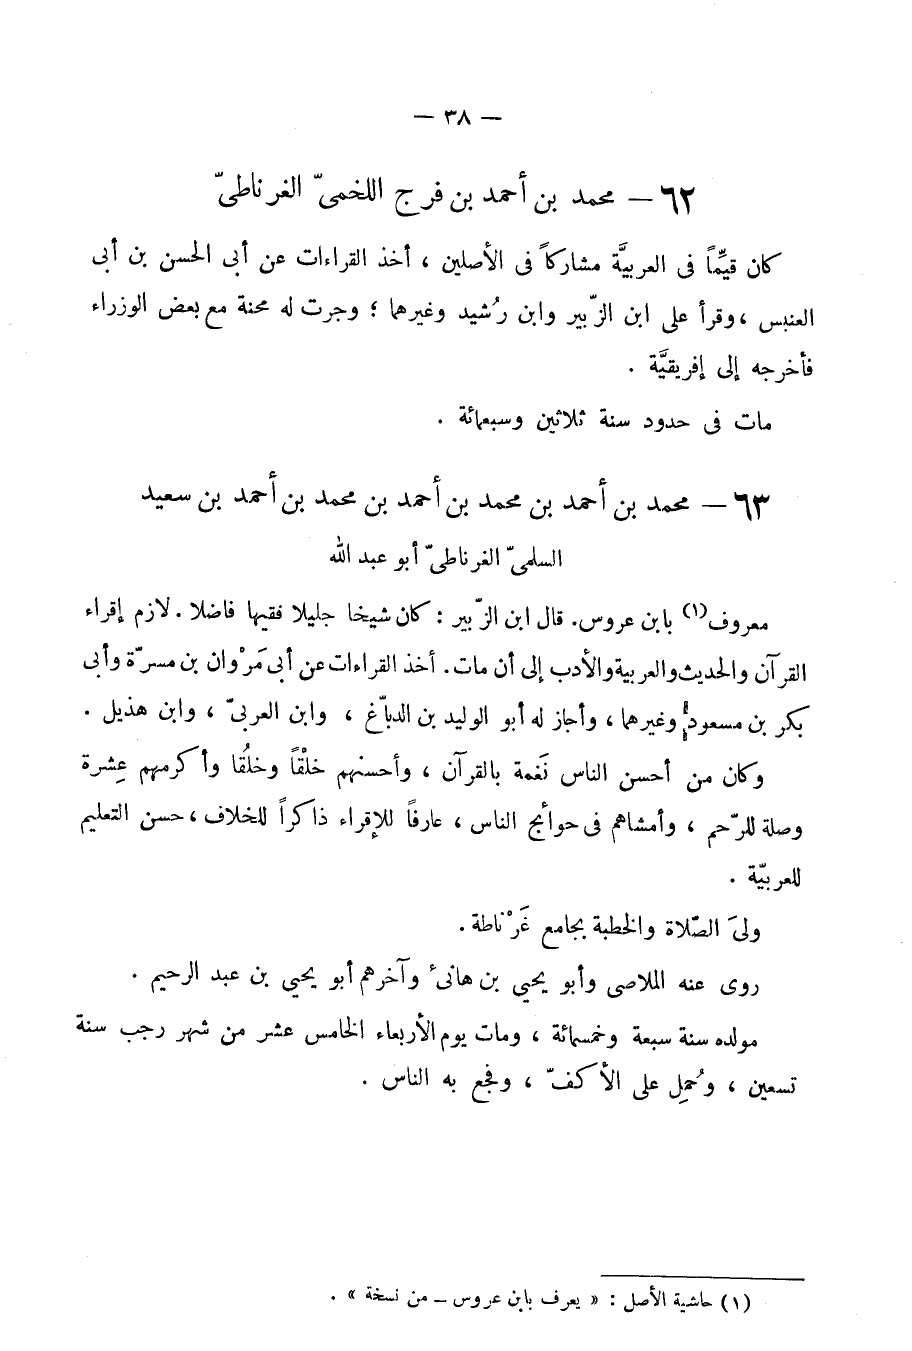 — ٣٨ —
٦٢ — محمد بن أحمد بن فرج اللخمىّ الغرناطىّ
كان قيِّماً فى العربيَّة مشاركاً فى الأصلين ، أخذ القراءات عن أبى الحسن بن أبى
العنبس ، وقرأ على ابن الزّبير وابن رُشيد وغيرهما ؛ وجرت له محنة مع بعض الوزراء
فأخرجه إلى إفريقيَّة .
مات فى حدود سنة ثلاثين وسبعمائة .
٦٣ — محمد بن أحمد بن محمد بن أحمد بن محمد بن أحمد بن سعيد
السلمىّ الغرناطىّ أبو عبد الله
معروف(١) بابن عروس. قال ابن الزّبير : كان شيخا جليلا فقيها فاضلا . لازم إقراء
القرآن والحديث والعربية والأدب إلى أن مات. أخذ القراءات عن أبى مَرْوان بن مسرّة وأبى
بكر بن مسعود وغيرهما ، وأجاز له أبو الوليد بن الدبّاغ ، وابن العربىّ ، وابن هذيل .
وكان من أحسن الناس نَغمة بالقرآن ، وأحسنهم خلْقاً وخلُقا وأكرمهم عِشرة
وصلة للرّحم ، وأمشاهم فى حوائج الناس ، عارفاً للإقراء ذاكراً للخلاف ، حسن التعليم
للعربيّة .
ولىَ الصّلاة والخطبة بجامع غَرْناطة .
روى عنه الملاصى وأبو يحيى بن هانىء وآخرهم أبو يحيى بن عبد الرحيم .
مولده سنة سبعة وخمسمائة ، ومات يوم الأربعاء الخامس عشر من شهر رجب سنة
تسعين ، وحُمِل على الأكفّ ، وفجع به الناس .
(١) حاشية الأصل : « يعرف بابن عروس — من نسخة » .